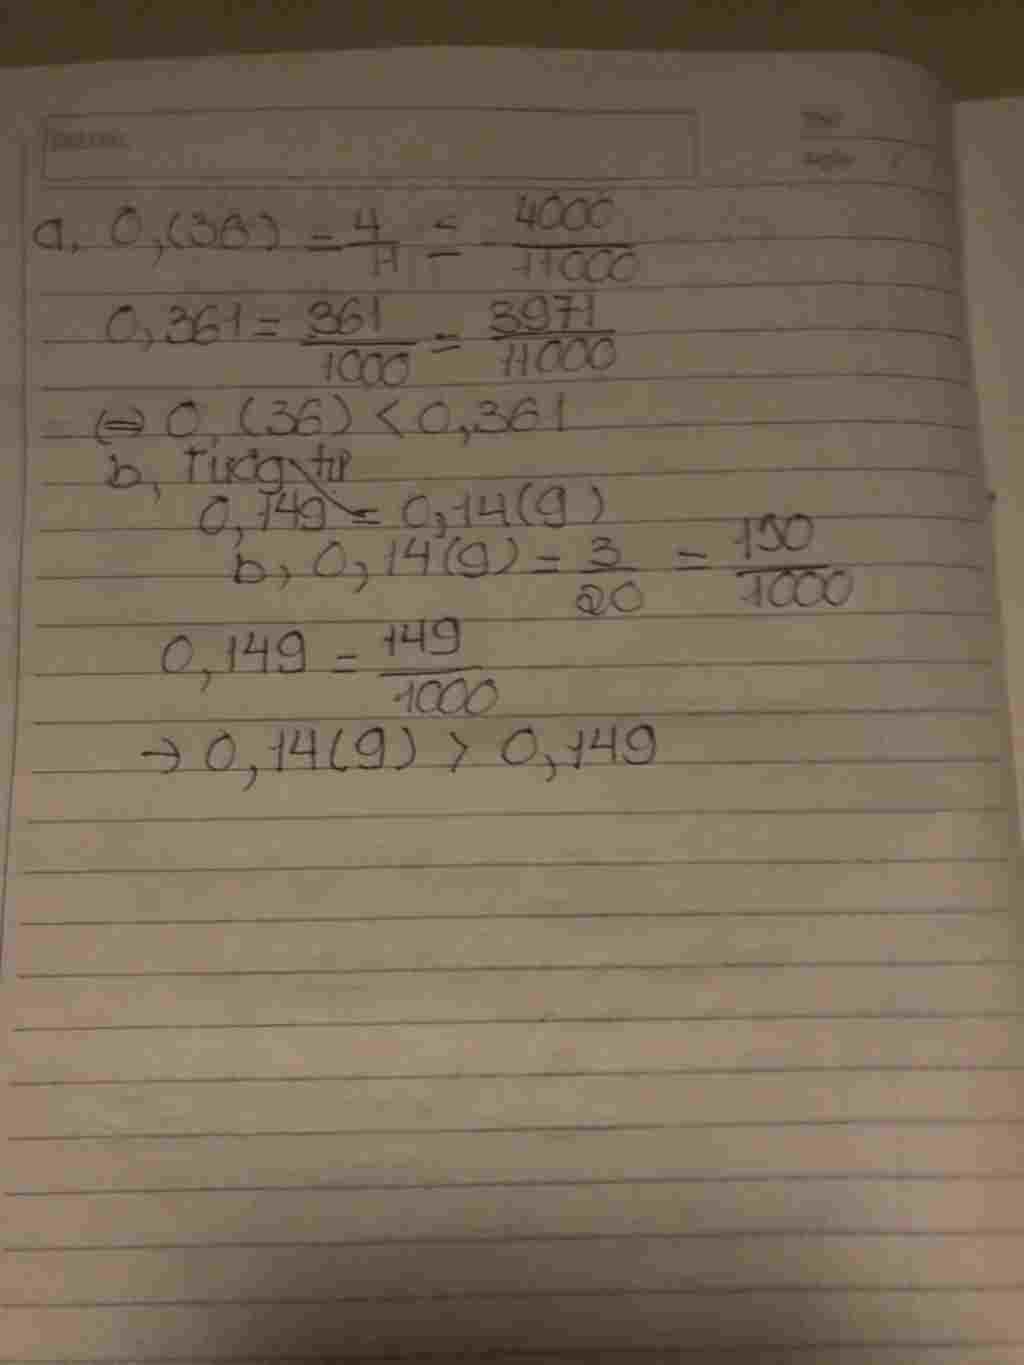 a, 0,(36) = 4/11 = 4000/11000
0,361 = 361/1000 = 3971/11000
(⇒ 0,(36) < 0,361
b, Tương tự
0,149 = 0,14(9)
b, 0,14(9) = 3/20 = 150/1000
0,149 = 149/1000
→ 0,14(9) > 0,149